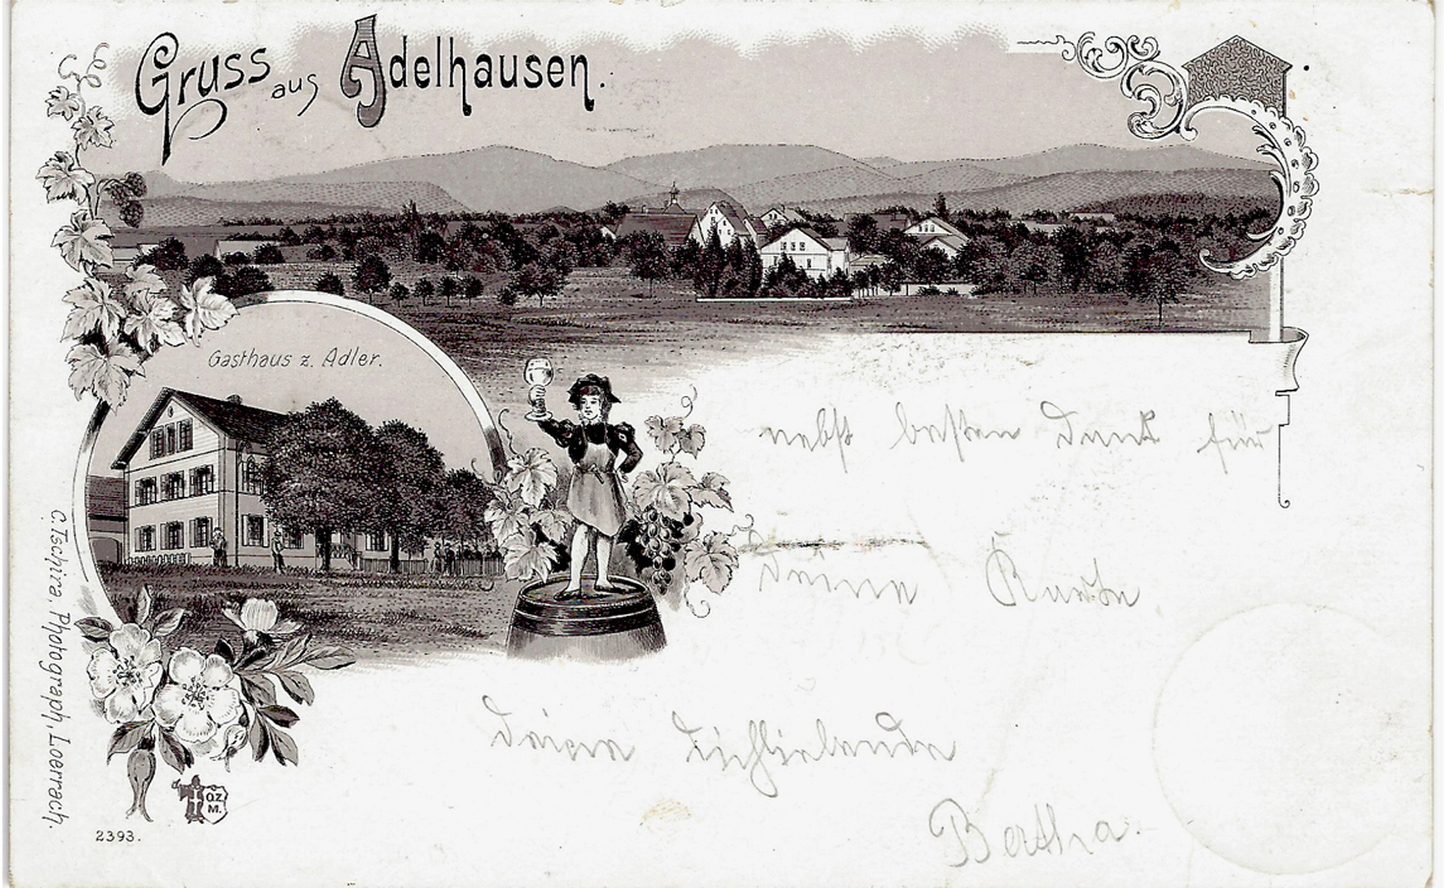 Gruss aus Adelhausen.
Gasthaus z. Adler.
nebst besten Dank für
Deine Karte
Deine Dichliebende
Bertha.
C. Tschira, Photograph, Loerrach.
OZ
M.
2393.